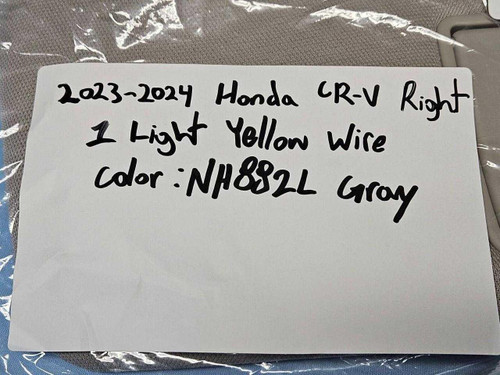 2023-2024 Honda CR-V Right
1 Light Yellow Wire
Color: NH882L Gray